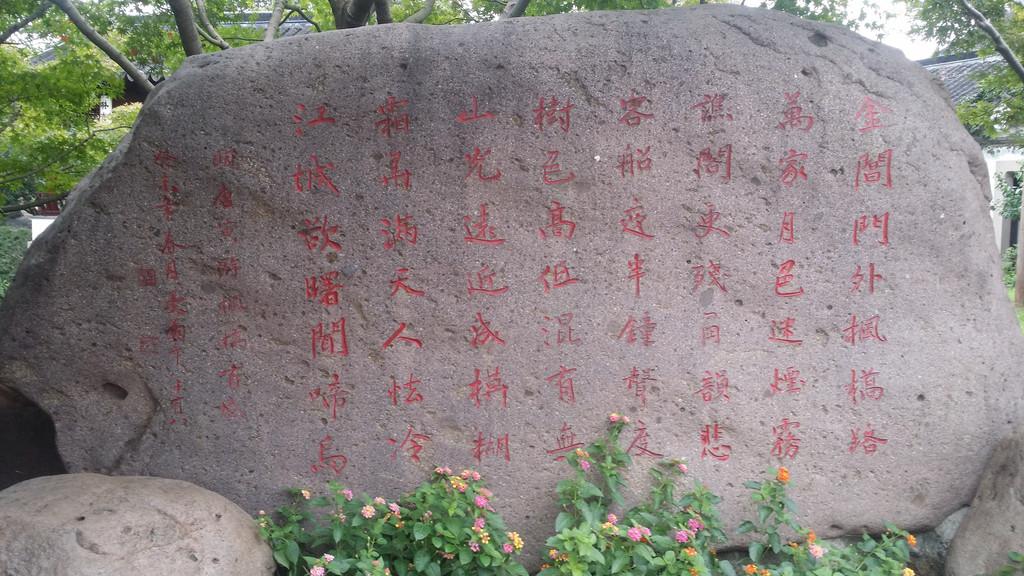 金閶門外楓橋路
萬家月色迷煙霧
譙閣更殘角韻悲
客船夜半鐘聲度
樹色高低混有無
山光遠近成模糊
霜華滿天人怯冷
江城欲曙聞啼烏
明唐寅詩楓橋有感
癸未年春月